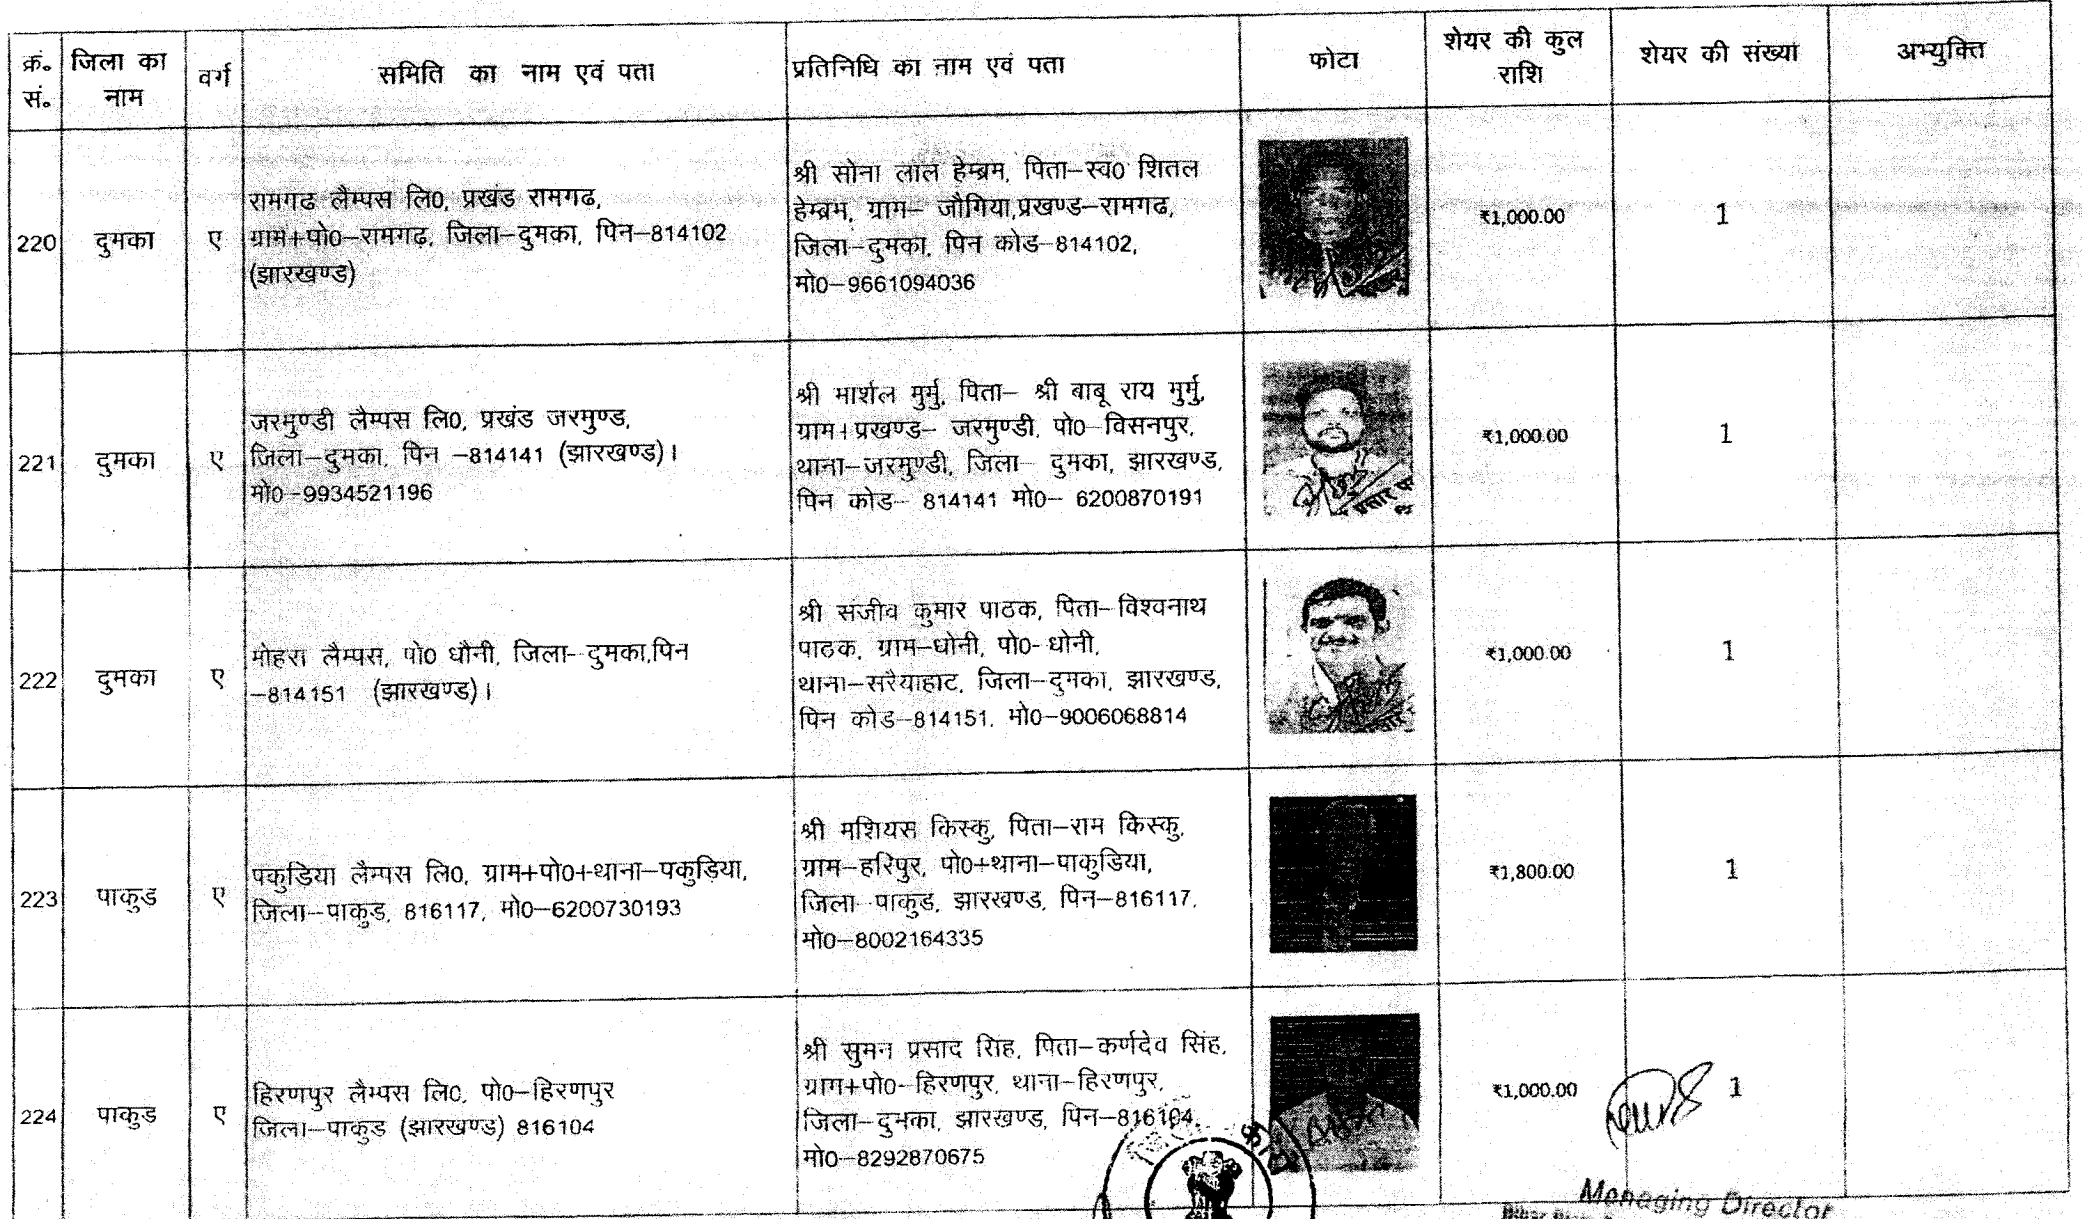 क्रं॰ सं॰
जिला का नाम
वर्ग
समिति का नाम एवं पता
प्रतिनिधि का नाम एवं पता
फोटा
शेयर की कुल राशि
शेयर की संख्या
अभ्युक्ति
220
दुमका
ए
रामगढ लैम्पस लि0, प्रखंड रामगढ,
ग्राम+पो0–रामगढ़, जिला–दुमका, पिन–814102
(झारखण्ड)
श्री सोना लाल हेम्ब्रम, पिता–स्व0 शितल
हेम्ब्रम, ग्राम– जौगिया,प्रखण्ड–रामगढ,
जिला–दुमका, पिन कोड–814102,
मो0–9661094036
₹1,000.00
1
221
दुमका
ए
जरमुण्डी लैम्पस लि0, प्रखंड जरमुण्ड,
जिला–दुमका, पिन –814141 (झारखण्ड)।
मो0–9934521196
श्री मार्शल मुर्मु, पिता– श्री बाबू राय मुर्मु,
ग्राम+प्रखण्ड– जरमुण्डी, पो0–विसनपुर,
थाना–जरमुण्डी, जिला– दुमका, झारखण्ड,
पिन कोड– 814141 मो0– 6200870191
₹1,000.00
1
222
दुमका
ए
मोहरा लैम्पस, पो0 धौनी, जिला–दुमका,पिन
–814151 (झारखण्ड)।
श्री संजीव कुमार पाठक, पिता–विश्वनाथ
पाठक, ग्राम–धोनी, पो0-धोनी,
थाना–सरैयाहाट, जिला–दुमका, झारखण्ड,
पिन कोड–814151, मो0–9006068814
₹1,000.00
1
223
पाकुड
ए
पकुडिया लैम्पस लि0, ग्राम+पो0+थाना–पकुड़िया,
जिला–पाकुड, 816117, मो0–6200730193
श्री मशियस किस्कु, पिता–राम किस्कु,
ग्राम–हरिपुर, पो0+थाना–पाकुडिया,
जिला–पाकुड, झारखण्ड, पिन–816117,
मो0–8002164335
₹1,800.00
1
224
पाकुड
ए
हिरणपुर लैम्पस लि0, पो0–हिरणपुर
जिला–पाकुड (झारखण्ड) 816104
श्री सुमन प्रसाद सिंह, पिता–कर्णदेव सिंह,
ग्राम+पो0–हिरणपुर, थाना–हिरणपुर,
जिला–दुमका, झारखण्ड, पिन–816104,
मो0–8292870675
₹1,000.00
1
Managing Director